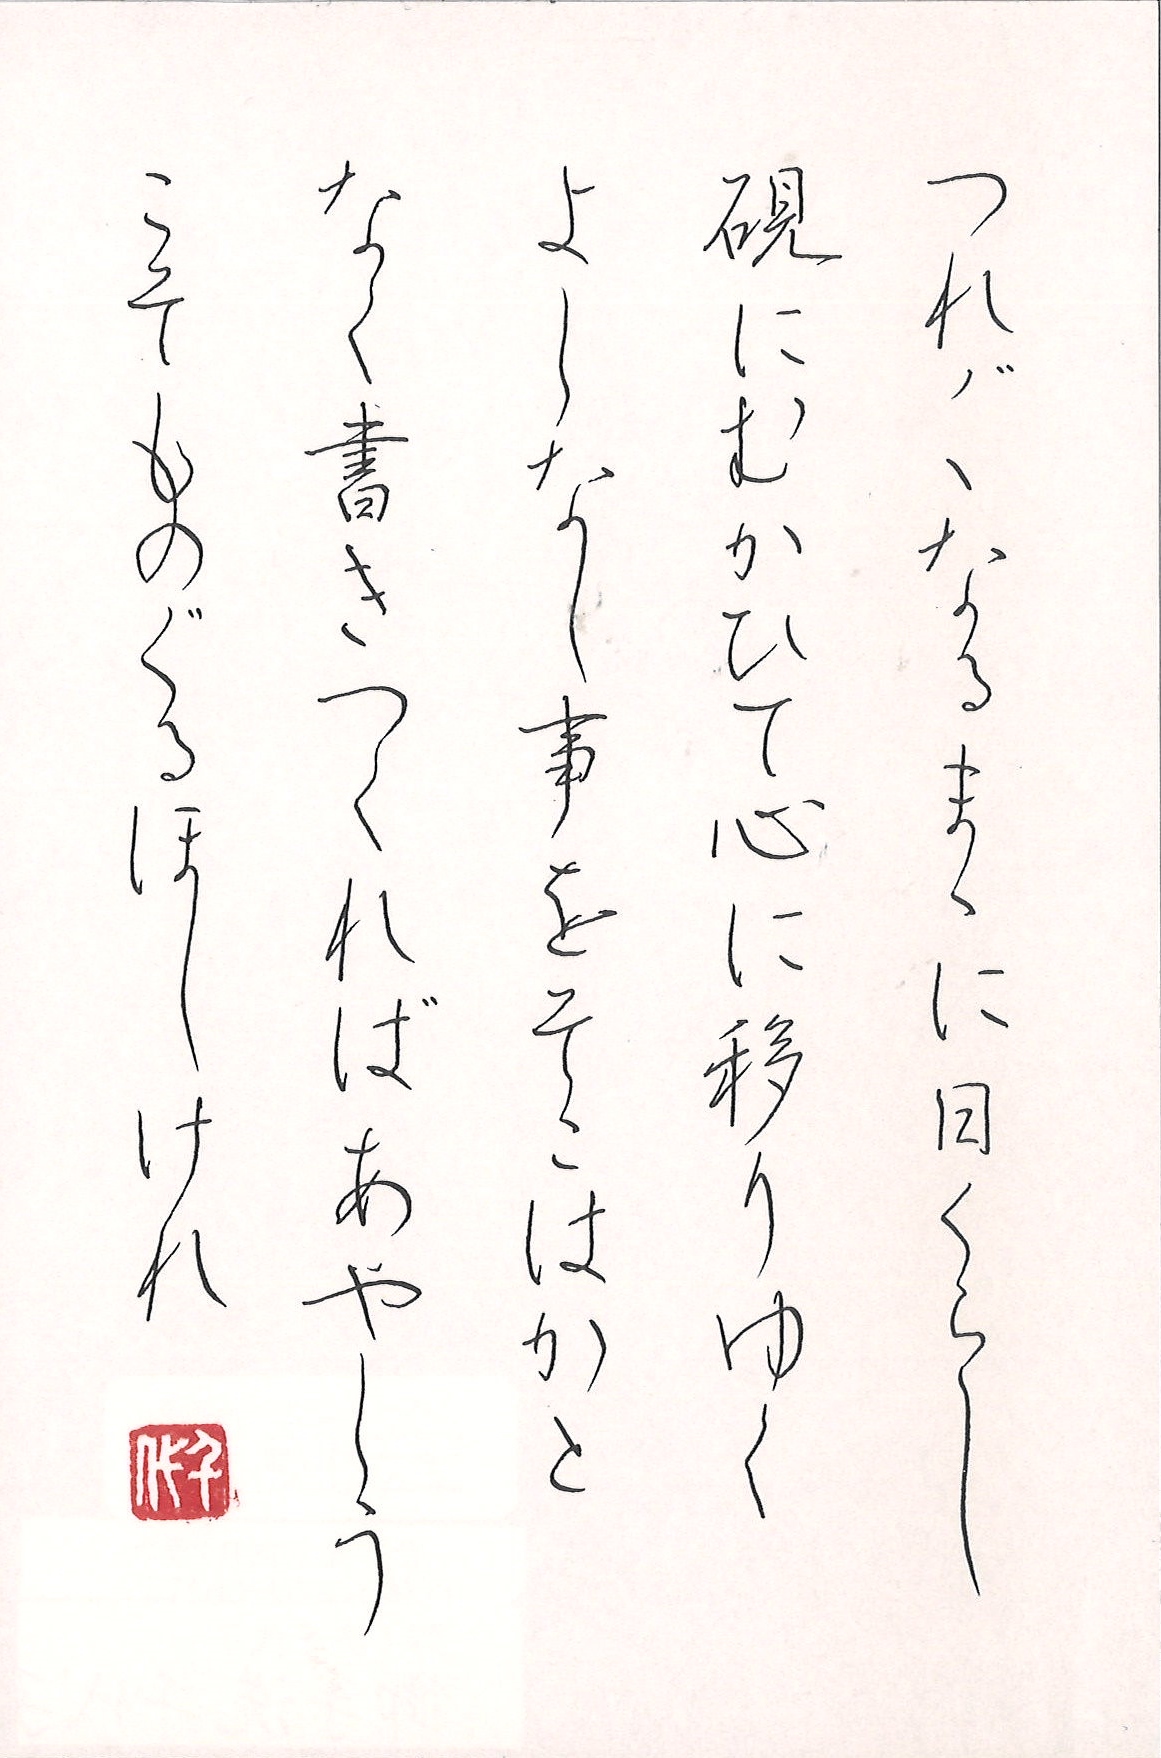 つれ〴〵なるまゝに日くらし
硯にむかひて心に移りゆく
よしなし事をそこはかと
なく書きつくればあやしう
こそものぐるほしけれ